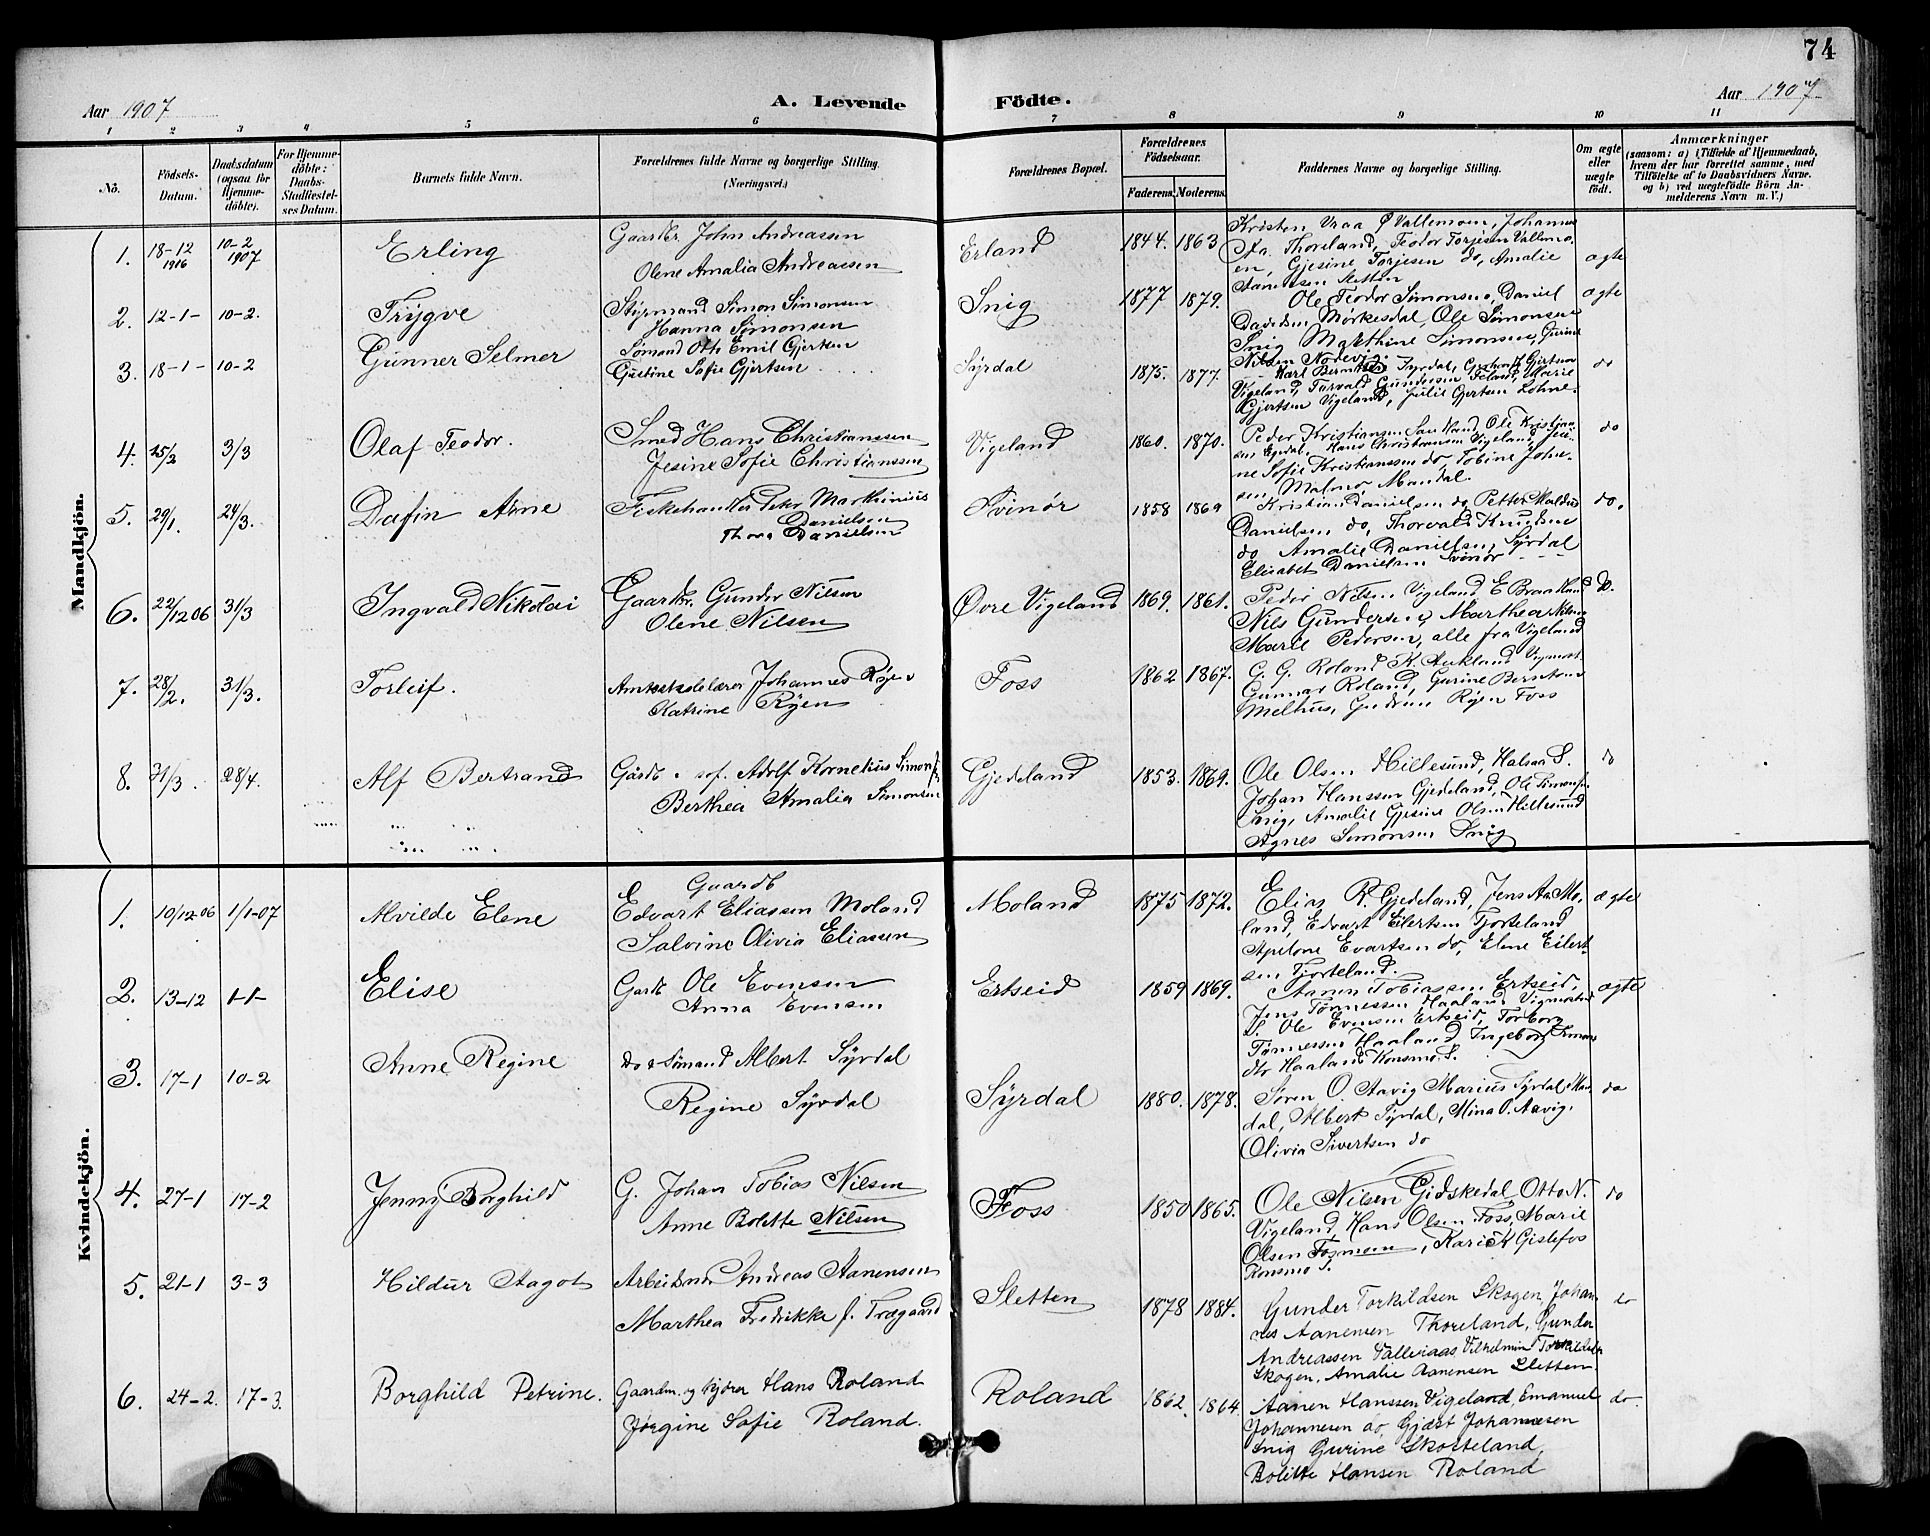 74
Aar 1907 A. Levende Födte. Aar 1907
1 2 3 4 5 6 7 8 9 10 11
No. Födsels-Datum. Daabsdatum (ogsaa for Hjemme-döbte). For Hjemme-döbte: Daabs-Stadfæstel-ses Datum. Barnets fulde Navn. Forældrenes fulde Navne og borgerlige Stilling. (Næringsvei.) Forældrenes Bopæl. Forældrenes Födselsaar. Faderens. Moderens. Faddernes Navne og borgerlige Stilling. Om ægte eller uægte födt. Anmærkninger (saasom: a) i Tilfælde af Hjemmedaab, hvem der har forrettet samme, med Tilföielse af to Daabsvidners Navne. og b) ved uægtefödte Börn An-melderens Navn m. V.)
Mandkjön.
1. 18-12 1916 10-2 1907 Erling Gaardbr. John Andreassen
Olene Amalia Andreassen Erland 1844. 1863
Kristen Vraa Ø Vallemoen, Johannes
Aa. Thoreland, Teodor Torjesen Vallemo-
en, Gjesine Torjesen do, Amalie
Aanensen Sletten ægte
2. 12-1- 10-2. Trygve Styrmand Simon Simonsen
Hanna Simonsen Snig 1877 1879.
Ole Teodor Simonsen, Daniel
Davidsen Mörkesdal, Ole Simonsen
Snig Makthine Simonsen, Gurine
Nilsen Nodevig. ægte
3. 18-1- 10-2 Gunner Selmer Sömand Otto Emil Gjertsen
Gustine Sofie Gjertsen Syrdal 1875. 1877.
Karl Berntsen Syrdal, Gerhard Gjertsen
Vigeland, Torvald Gundersen Föland, Marie
Gjertsen Vigeland, Julie Gjertsen Lohne. do
4. 25/2 3/3 Olaf Teodor. Smed Hans Christianssen
Jesine Sofie Christianssen Vigeland 1860. 1870.
Peder Kristiansen Ole Kristian
sen Egdal, Hans Christiansen Vigeland, Jesi-
ne Sofie Kristianssen do, Tobine John-
sen, Malmö Mandal. do
5. 29/1. 24/3. Dafin Arne Fiskehandler Peter Markinius
Danielsen
Thora Danielsen Svinör 1858 1869
Kristian Danielsen do, Petter
Danielsen do, Thorvald Knudsen
do Amalie Danielsen, Syrdal
Elisabet Danielsen Svinör do.
6. 22/12 06 31/3 Ingvald Nikolai Gaardbr. Gunder Nilsen
Olene Nilsen Øvre Vigeland 1869. 1861.
Peder Nilsen Vigeland E Braatland
Nils Gundersen, Marthea Nilsen
Marie Pedersen, alle fra Vigeland D.
7. 28/2. 31/3. Torleif. Amtsskolelærer Johannes Röyen
Katrine Röyen Foss 1862 1867.
G. G. Roland K. Aukland Vigmost.
Gunnar Roland, Gurine Berntsen
Melhus, Gudrun Röyen Foss
8. 31/3. 28/4. Alf Bertrand Gårdb. Adolf Kornelius Simons
Berthea Amalia Simonsen Gjedeland 1853. 1869.
Ole Olsen Hillesund, Halsaa S.
Johan Hanssen Gjedeland, Ole Simonsen
Snig, Amalie Gjesine Olsen Hillesund
Agnes Simonsen Snig do
Kvindekjön.
1. 10/12 06 1/1-07 Alvilde Elene Gaardb
Edvart Eliassen Moland
Salvine Olivia Eliassen Moland 1875 1872.
Elias R. Gjedeland, Jens Aa. Mo-
land, Edvart Eilertsen Tjorteland
Apelone Evartsen do, Elene Eilert-
sen Tjorteland. ægte
2. 13-12 1-1- Elise Gardb Ole Evensen
Anna Evensen Ertseid 1859 1869.
Aanen Tobiassen Ertseid,
Jens Tönnessen Haaland Vigmostad
S. Ole Evensen Ertseid, Torborg
Tönnessen Haaland Ingeborg
dtr Haaland Konsmo S. ægte
3. 17-1 10-2 Anne Regine do & Sömand Albert Syrdal
Regine Syrdal Syrdal 1880. 1878.
Sören O. Aavig Marius Syrdal, Man-
dal, Albert Syrdal, Mina O. Aavig,
Olivia Sivertsen do do
4. 27-1 17-2 Jenny Borghild G. Johan Tobias Nilsen
Anne Bolette Nilsen Foss 1850 1865.
Ole Nilsen Gidskedal, Otto N.
Vigeland, Hans Olsen Foss, Marie
Olsen Fosmoen, Karie K Gislefos
Konsmo S. do
5. 21-1 3-3 Hildur Aagot Arbeidsm Andreas Aanensen
Marthea Fredrikke f. Trægaard Sletten 1878 1884.
Gunder Torkildsen Skogen, Johan-
nes Aanensen Thoreland, Gunder
Andreassen Valleviaas Vilhelmine Torkildsen
Skogen, Amalie Aanensen Sletten do
6. 24-2. 17-3. Borghild Petrine. Gaardm. og Hans Roland
Jörgine Sofie Roland. Roland 1862. 1864.
Aanen Hanssen Vigeland, Emanuel
Johannesen do, Gjært Johannesen
Snig Gurine Skofteland,
Bolette Hansen Roland do